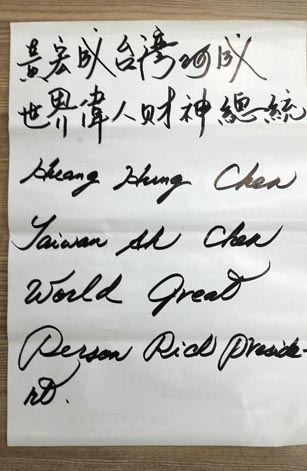 黃宏成台灣阿成
世界偉人財神總統
Huang Hung Chen
Taiwan Ah Chen
World Great
Person Rich Preside-
nt.